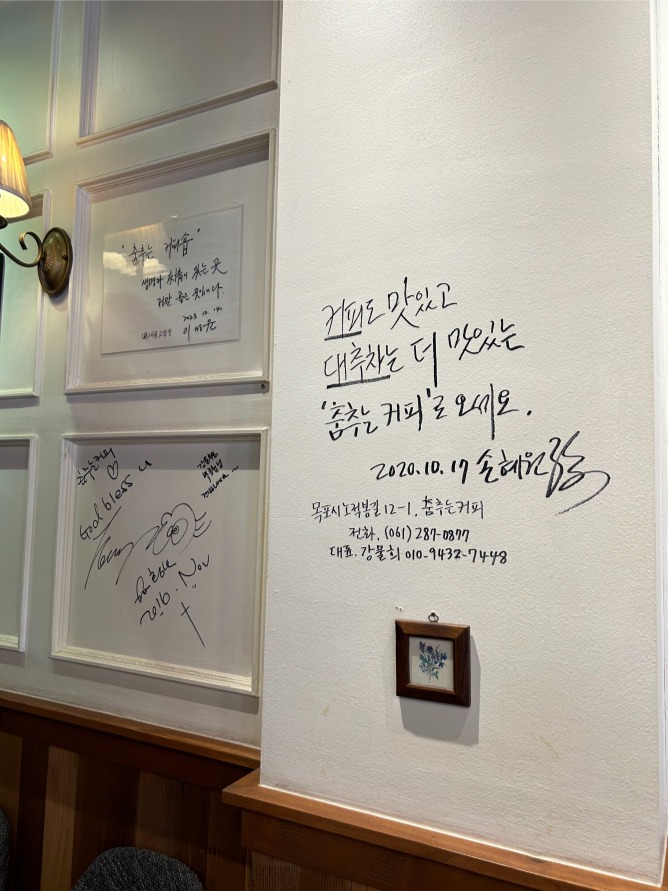 "춤추는 커피숍"
생명과 사랑이 있는 곳
정말 좋은 곳입니다.
커피도 맛있고
대추차는 더 맛있는
'춤추는 커피'로 오세요.
2020.10.17 손혜원
목포시 노적봉길 12-1. 춤추는커피
전화. (061) 287-0877
대표. 강물희 010-9432-7448
춤추는커피
God bless u
2016. Nov